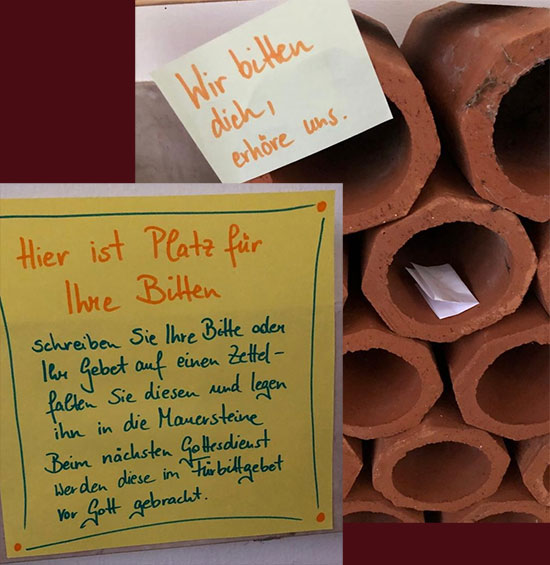 Wir bitten
dich,
erhöre uns.
Hier ist Platz für
Ihre Bitten
schreiben Sie Ihre Bitte oder
Ihr Gebet auf einen Zettel-
falten Sie diesen und legen
ihn in die Mauersteine
Beim nächsten Gottesdienst
werden diese im Fürbittgebet
vor Gott gebracht.